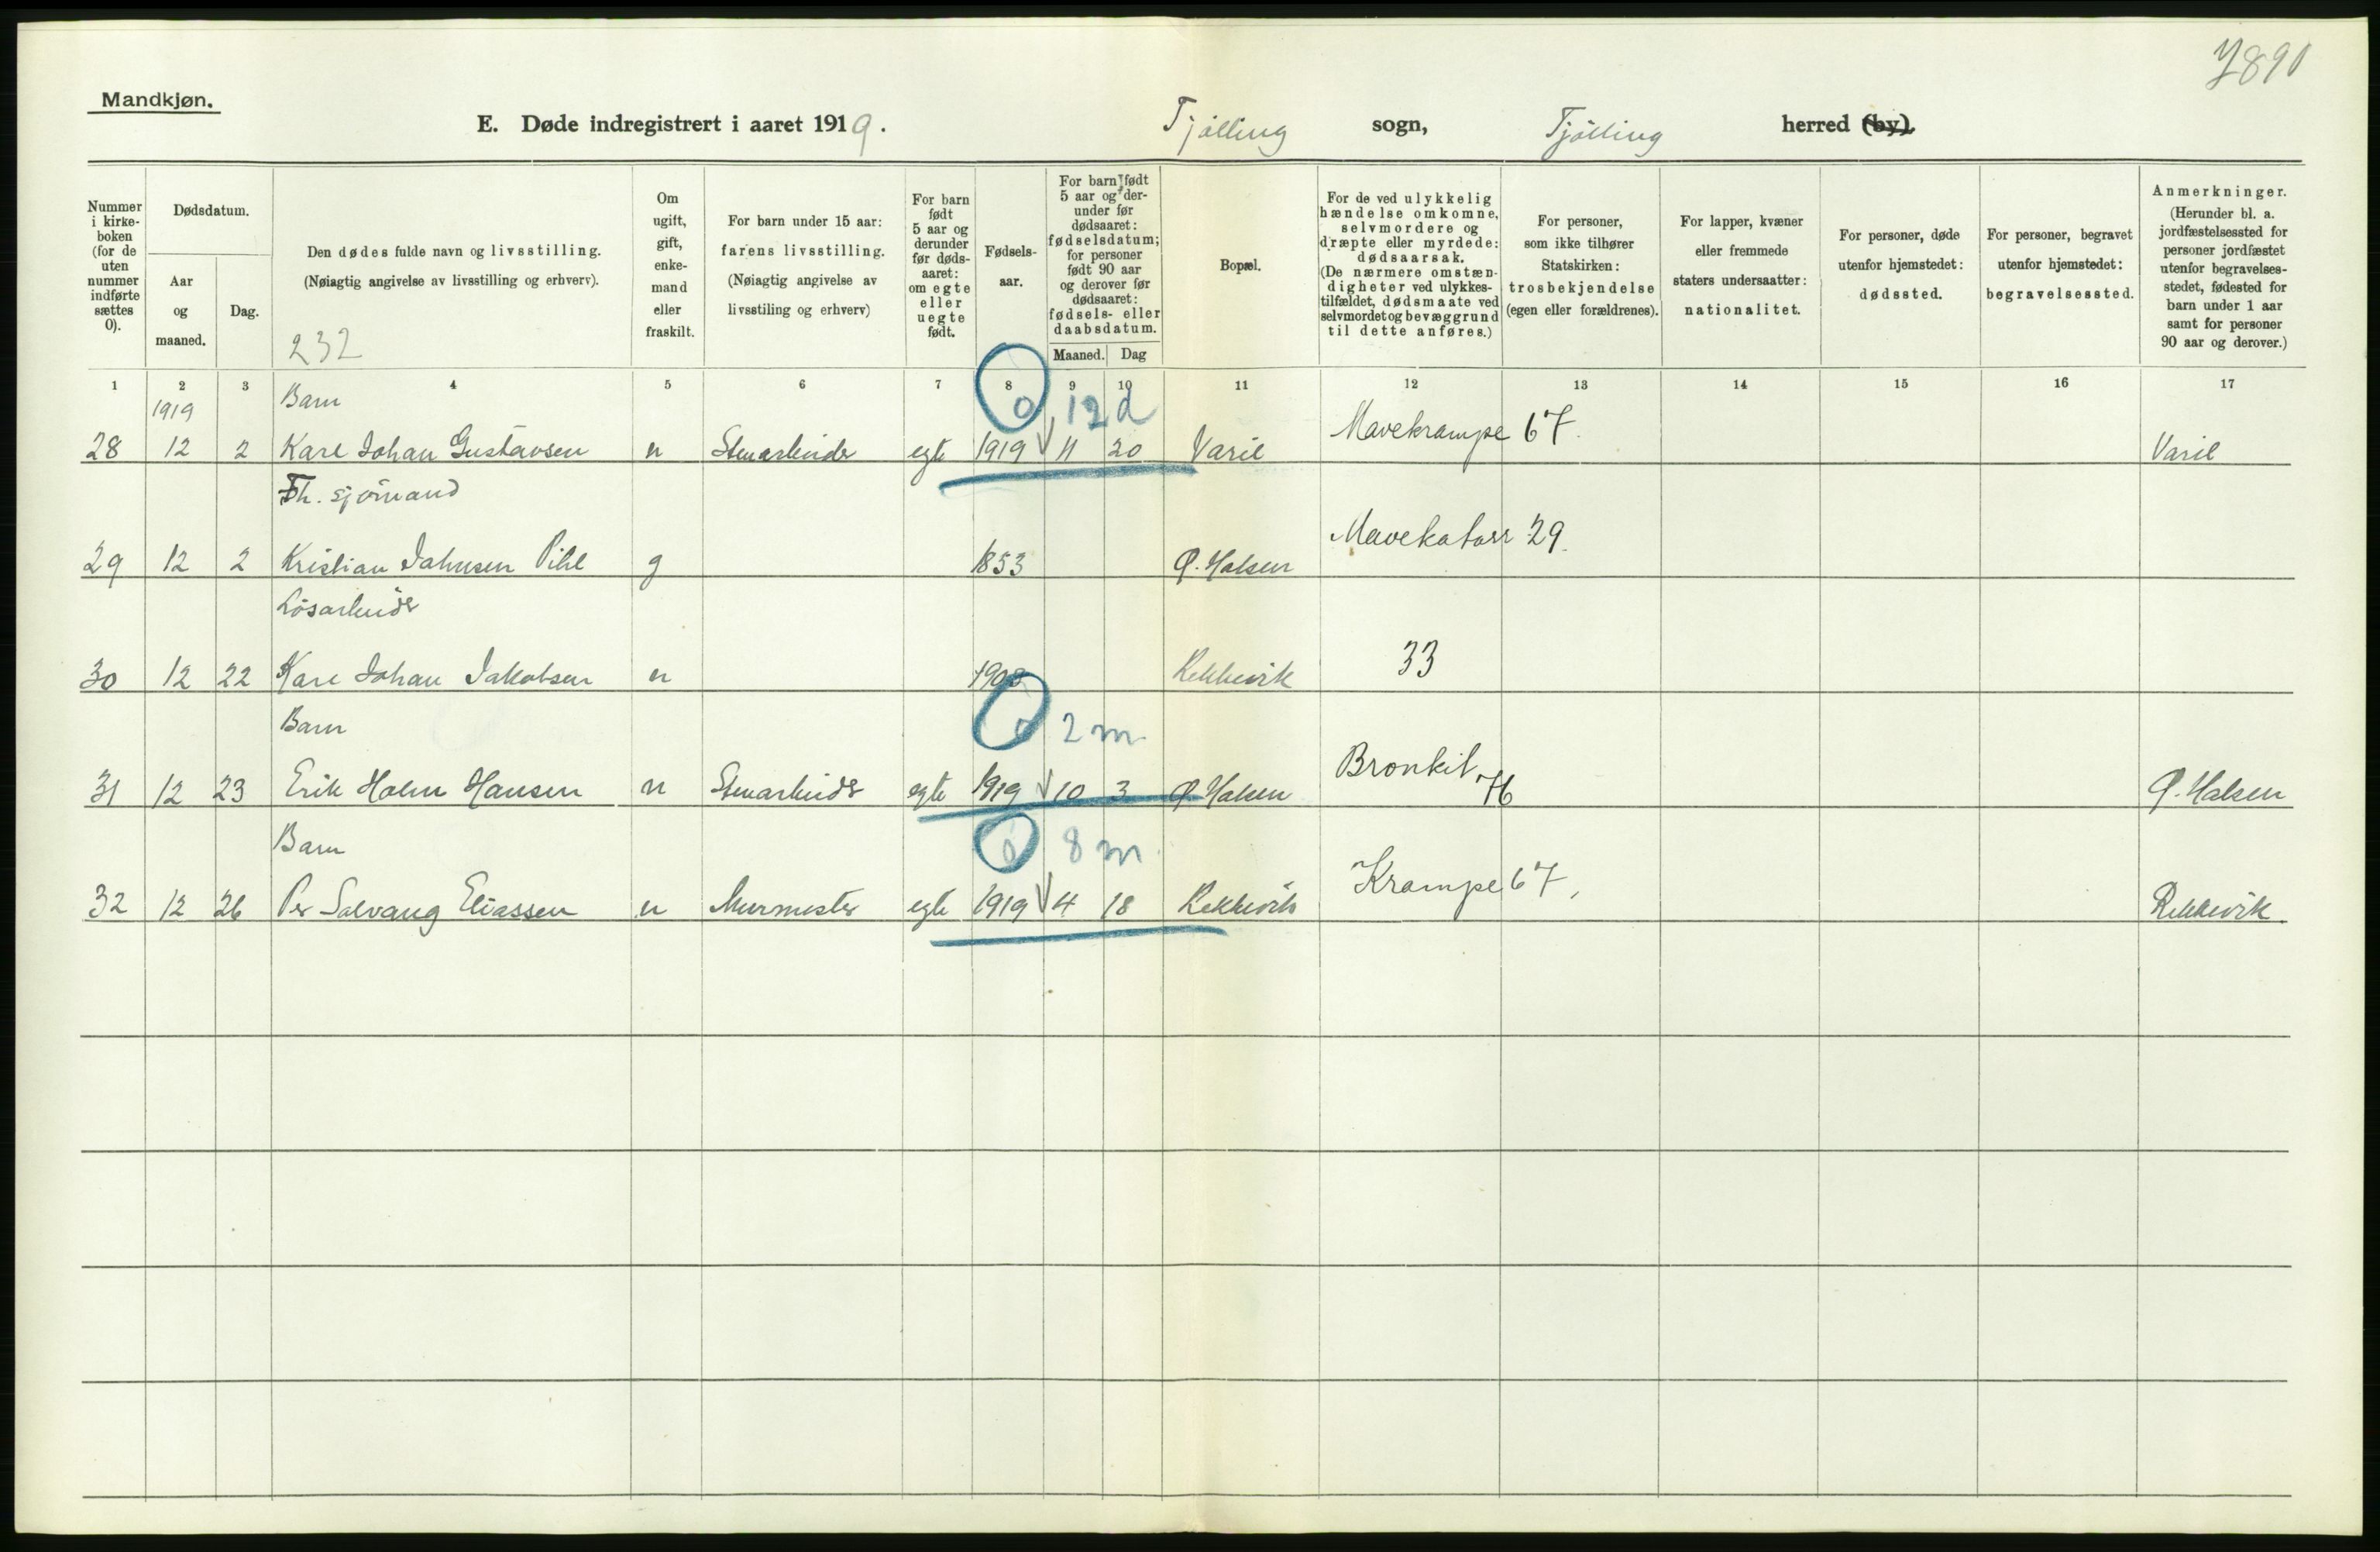 7890
Mandkjøn.
E. Døde indregistrert i aaret 1919. Tjølling sogn, Tjølling herred (by).
Nummer i kirke-boken (for de uten nummer indførte sættes 0).
Dødsdatum.
Aar og maaned.
Dag.
Den dødes fulde navn og livsstilling.
(Nøiagtig angivelse av livsstilling og erhverv).
232
Om ugift, gift, enke-mand eller fraskilt.
For barn under 15 aar:
farens livsstilling.
(Nøiagtig angivelse av
livsstiling og erhverv)
For barn født 5 aar og derunder før døds-aaret: om egte eller uegte født.
Fødsels-aar.
For barn født 5 aar og der-under før dødsaaret: fødselsdatum; for personer født 90 aar og derover før dødsaaret: fødsels- eller daabsdatum.
Maaned. Dag
Bopæl.
For de ved ulykkelig hændelse omkomne, selvmordere og dræpte eller myrdede: dødsaarsak.
(De nærmere omstæn-digheter ved ulykkes-tilfældet, dødsmaate ved selvmordet og bevæggrund til dette anføres.)
For personer, som ikke tilhører Statskirken: trosbekjendelse (egen eller forældrenes).
For lapper, kvæner eller fremmede staters undersaatter: nationalitet.
For personer, døde utenfor hjemstedet: dødssted.
For personer, begravet utenfor hjemstedet: begravelsessted.
Anmerkninger.
(Herunder bl. a. jordfæstelsessted for personer jordfæstet utenfor begravelses-stedet, fødested for barn under 1 aar samt for personer 90 aar og derover.)
1 2 3 4 5 6 7 8 9 10 11 12 13 14 15 16 17
1919 Barn 0 12 d
28 12 2 Karl Johan Gustavsen u Stenarbeider egte 1919 11 20 Varil Mavekrampe 67. Varil
Fh. sjømand
29 12 2 Kristian Jahnsen Pihl g 1853 Ø. Halsen Mavekatarr 29.
Løsarbeider
30 12 22 Karl Johan Jakobsen u Rekkevik 33
Barn 0 2 m
31 12 23 Erik Holm Hansen u Stenarbeider egte 1919 10 3 Ø. Halsen Bronkit 46 Ø. Halsen
Barn 0 8 m.
32 12 26 Per Solvang Eliassen u Murmester egte 1919 4 18 Rekkevik Krampe 67, Rekkevik.